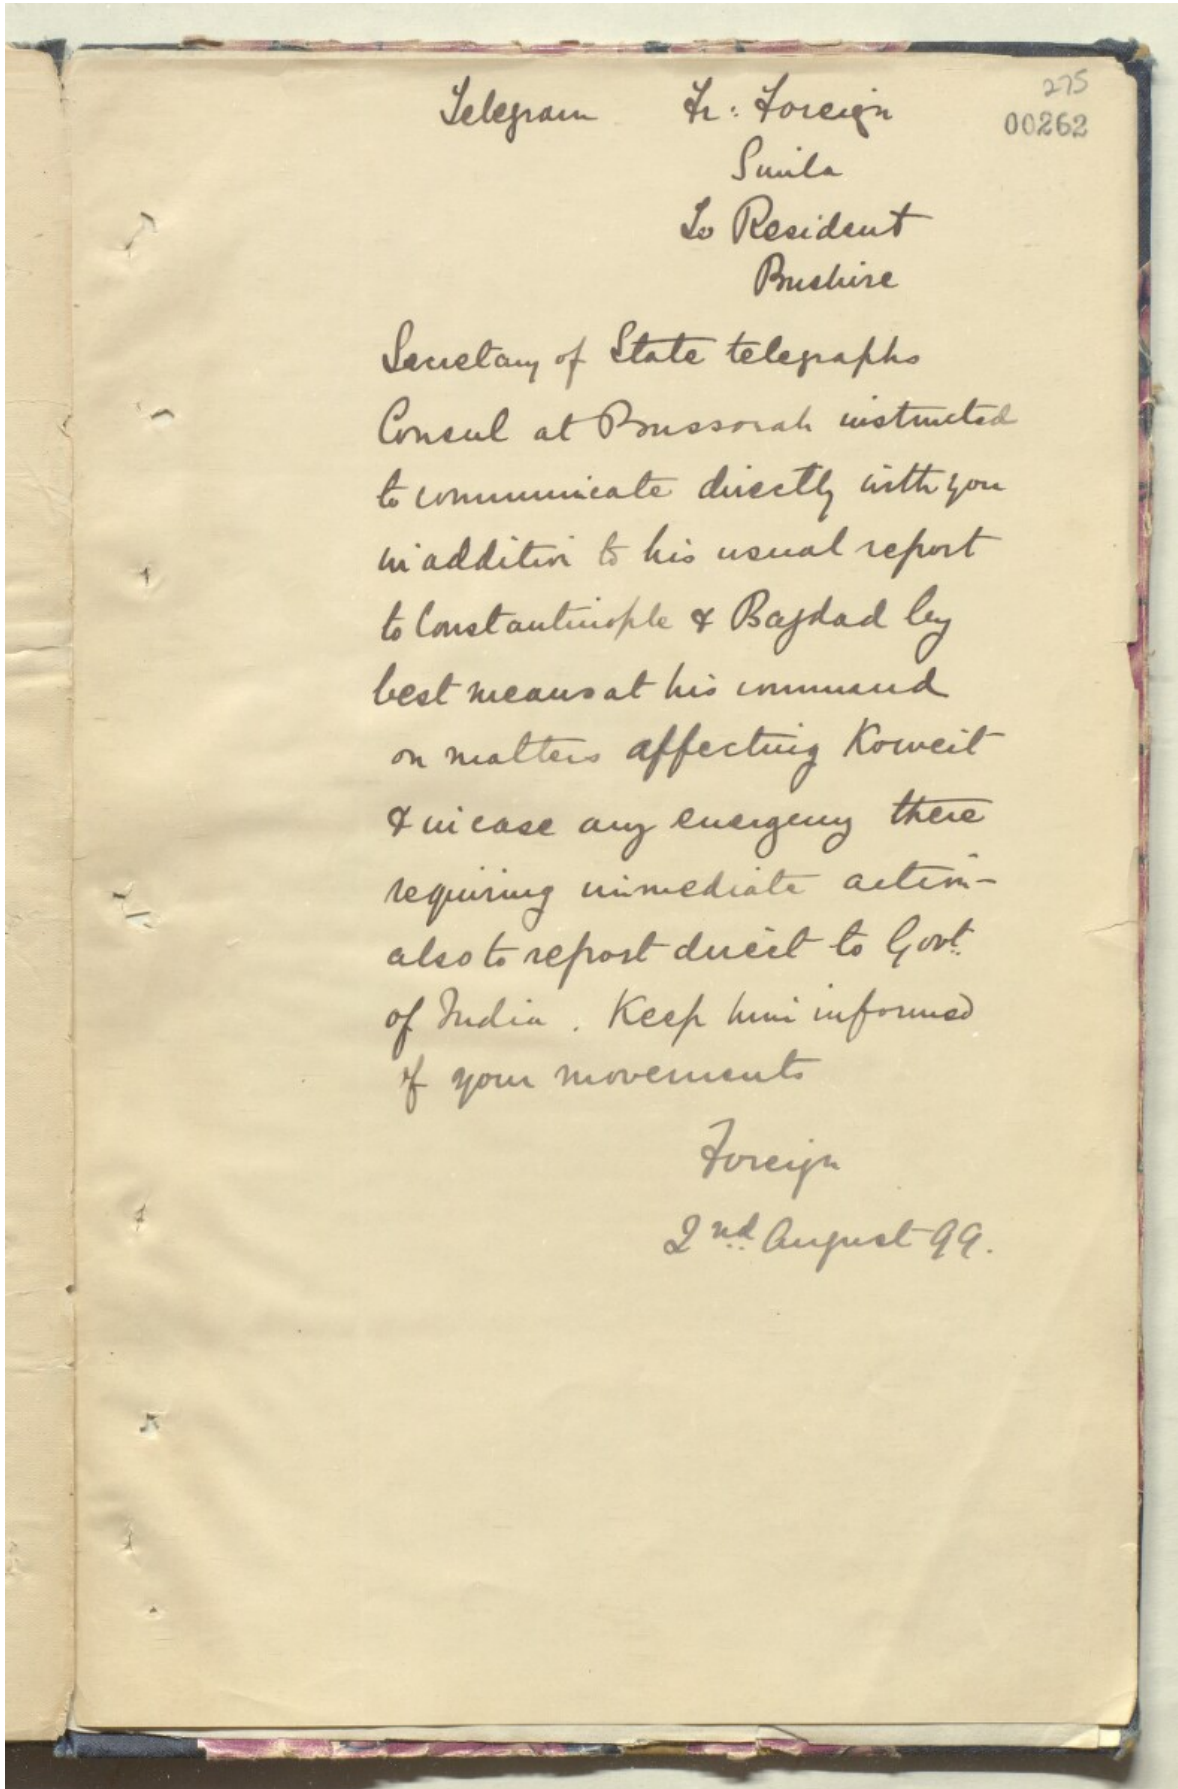 275
00262
Telegram Fr: Foreign
Simla
To Resident
Bushire
Secretary of State telegraphs
Consul at Bussorah instructed
to communicate directly with you
in addition to his usual report
to Constantinople & Bagdad by
best means at his command
on matters affecting Koweit
& in case any emergency there
requiring immediate action -
also to report direct to Govt.
of India. Keep him informed
of your movements
Foreign
2nd August 99.